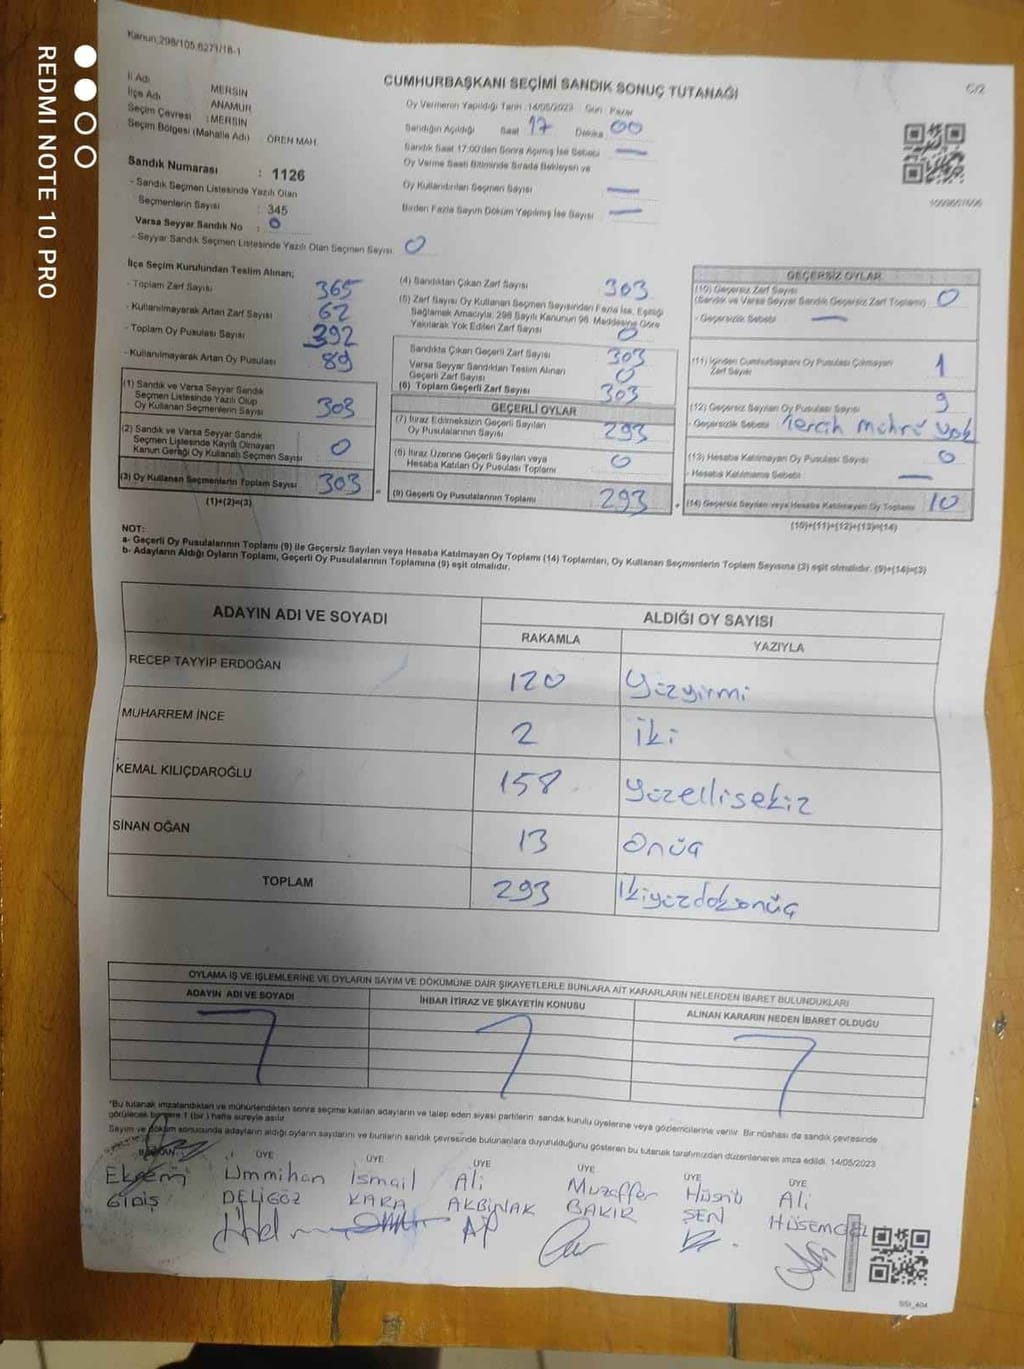 REDMI NOTE 10 PRO
Kanun:298/105,6271/18-1
CUMHURBAŞKANI SEÇİMİ SANDIK SONUÇ TUTANAĞI
C/2
İl Adı MERSİN
İlçe Adı ANAMUR
Seçim Çevresi : MERSİN
Seçim Bölgesi (Mahalle Adı) ÖREN MAH.
Sandık Numarası : 1126
- Sandık Seçmen Listesinde Yazılı Olan
Seçmenlerin Sayısı : 345
Varsa Seyyar Sandık No : 0
- Seyyar Sandık Seçmen Listesinde Yazılı Olan Seçmen Sayısı 0
Oy Vermenin Yapıldığı Tarih : 14/05/2023 Gün : Pazar
Sandığın Açıldığı Saat 17 Dakika 00
Sandık Saat 17:00'den Sonra Açılmış İse Sebebi —
Oy Verme Saati Bitiminde Sırada Bekleyen ve
Oy Kullandırılan Seçmen Sayısı —
Birden Fazla Sayım Döküm Yapılmış İse Sayısı —
İlçe Seçim Kurulundan Teslim Alınan;
- Toplam Zarf Sayısı 365
- Kullanılmayarak Artan Zarf Sayısı 62
- Toplam Oy Pusulası Sayısı 392
- Kullanılmayarak Artan Oy Pusulası 89
(1) Sandık ve Varsa Seyyar Sandık
Seçmen Listesinde Yazılı Olup
Oy Kullanan Seçmenlerin Sayısı 303
(2) Sandık ve Varsa Seyyar Sandık
Seçmen Listesinde Kayıtlı Olmayan
Kanun Gereği Oy Kullanan Seçmen Sayısı 0
(3) Oy Kullanan Seçmenlerin Toplam Sayısı 303
(1)+(2)=(3)
(4) Sandıktan Çıkan Zarf Sayısı 303
(5) Zarf Sayısı Oy Kullanan Seçmen Sayısından Fazla İse, Eşitliği
Sağlamak Amacıyla; 298 Sayılı Kanunun 98. Maddesine Göre
Yakılarak Yok Edilen Zarf Sayısı 0
Sandıkta Çıkan Geçerli Zarf Sayısı 303
Varsa Seyyar Sandıktan Teslim Alınan
Geçerli Zarf Sayısı 0
(6) Toplam Geçerli Zarf Sayısı 303
GEÇERLİ OYLAR
(7) İtiraz Edilmeksizin Geçerli Sayılan
Oy Pusulalarının Sayısı 293
(8) İtiraz Üzerine Geçerli Sayılan veya
Hesaba Katılan Oy Pusulası Toplamı 0
(9) Geçerli Oy Pusulalarının Toplamı 293
GEÇERSİZ OYLAR
(10) Geçersiz Zarf Sayısı
(Sandık ve Varsa Seyyar Sandık Geçersiz Zarf Toplamı) 0
- Geçersizlik Sebebi —
(11) İçinden Cumhurbaşkanı Oy Pusulası Çıkmayan
Zarf Sayısı 1
(12) Geçersiz Sayılan Oy Pusulası Sayısı 9
- Geçersizlik Sebebi Tercih Mührü yok
(13) Hesaba Katılmayan Oy Pusulası Sayısı 0
- Hesaba Katılmama Sebebi : —
(14) Geçersiz Sayılan veya Hesaba Katılmayan Oy Toplamı 10
(10)+(11)+(12)+(13)=(14)
NOT:
a- Geçerli Oy Pusulalarının Toplamı (9) ile Geçersiz Sayılan veya Hesaba Katılmayan Oy Toplamı (14) Toplamları, Oy Kullanan Seçmenlerin Toplam Sayısına (3) eşit olmalıdır. (9)+(14)=(3)
b- Adayların Aldığı Oyların Toplamı, Geçerli Oy Pusulalarının Toplamına (9) eşit olmalıdır.
ADAYIN ADI VE SOYADI ALDIĞI OY SAYISI
RAKAMLA YAZIYLA
RECEP TAYYİP ERDOĞAN 120 Yüzyirmi
MUHARREM İNCE 2 iki
KEMAL KILIÇDAROĞLU 158 Yüzellisekiz
SİNAN OĞAN 13 Onüç
TOPLAM 293 ikiyüzdoksanüç
OYLAMA İŞ VE İŞLEMLERİNE VE OYLARIN SAYIM VE DÖKÜMÜNE DAİR ŞİKAYETLERLE BUNLARA AİT KARARLARIN NELERDEN İBARET BULUNDUKLARI
ADAYIN ADI VE SOYADI İHBAR İTİRAZ VE ŞİKAYETİN KONUSU ALINAN KARARIN NEDEN İBARET OLDUĞU
*Bu tutanak imzalandıktan ve mühürlendikten sonra seçime katılan adayların ve talep eden siyasi partilerin sandık kurulu üyelerine veya gözlemcilerine verilir. Bir nüshası da sandık çevresinde
görülecek bir yere 1 (bir) hafta süreyle asılır.
Sayım ve döküm sonucunda adayların aldığı oyların sayılarını ve bunların sandık çevresinde bulunanlara duyurulduğunu gösteren bu tutanak tarafımızdan düzenlenerek imza edildi. 14/05/2023
BAŞKAN ÜYE ÜYE ÜYE ÜYE ÜYE ÜYE
Ekrem Ümmihan İsmail Ali Muzaffer Hüsnü Ali
DELİGÖZ KARA AKBINAK BAKIR ŞEN
SSI_404